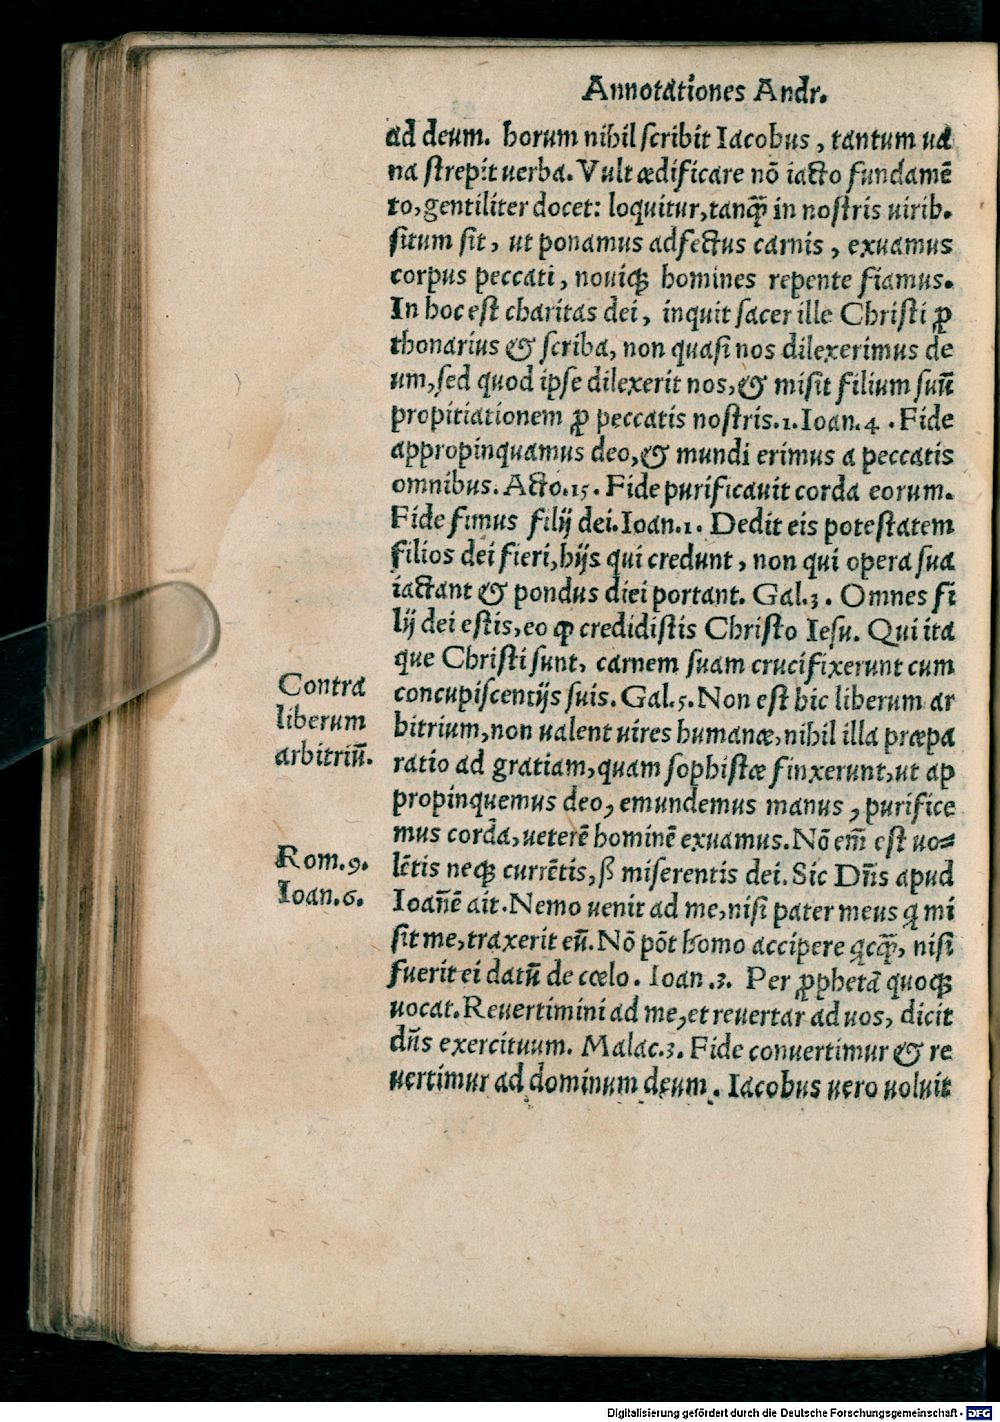 Annotationes Andr.
ad deum. horum nihil scribit Iacobus, tantum ua
na strepit uerba. Vult ædificare nõ iacto fundamẽ
to, gentiliter docet: loquitur, tanꝗ̃ in nostris uirib.
situm sit, ut ponamus adfectus carnis, exuamus
corpus peccati, nouiqꝫ homines repente fiamus.
In hoc est charitas dei, inquit sacer ille Christi ꝓ
thonarius & scriba, non quasi nos dilexerimus de
um, sed quod ipse dilexerit nos, & misit filium suũ
propitiationem ꝓ peccatis nostris. 1. Ioan. 4. Fide
appropinquamus deo, & mundi erimus a peccatis
omnibus. Acto. 15. Fide purificauit corda eorum.
Fide fimus filij dei. Ioan. 1. Dedit eis potestatem
filios dei fieri, hijs qui credunt, non qui opera sua
iactant & pondus diei portant. Gal. 3. Omnes fi
lij dei estis, eo ꝙ credidistis Christo Iesu. Qui ita
que Christi sunt, carnem suam crucifixerunt cum
Contra
liberum
arbitriũ.
concupiscentijs suis. Gal. 5. Non est hic liberum ar
bitrium, non ualent uires humanæ, nihil illa præpa
ratio ad gratiam, quam sophistæ finxerunt, ut ap
propinquemus deo, emundemus manus, purifice
mus corda, ueterẽ hominẽ exuamus. Nõ em̃ est uo⸗
Rom. 9.
Ioan. 6.
lẽtis neqꝫ currẽtis, ß miserentis dei. Sic Dñs apud
Ioañẽ ait. Nemo uenit ad me, nisi pater meus ꝗ mi
sit me, traxerit eũ. Nõ põt homo accipere ꝗcꝗ̃, nisi
fuerit ei datũ de cœlo. Ioan. 3. Per ꝓphetã quoqꝫ
uocat. Reuertimini ad me, et reuertar ad uos, dicit
dñs exercituum. Malac. 3. Fide conuertimur & re
uertimur ad dominum deum. Iacobus uero uoluit
Digitalisierung gefördert durch die Deutsche Forschungsgemeinschaft - DFG